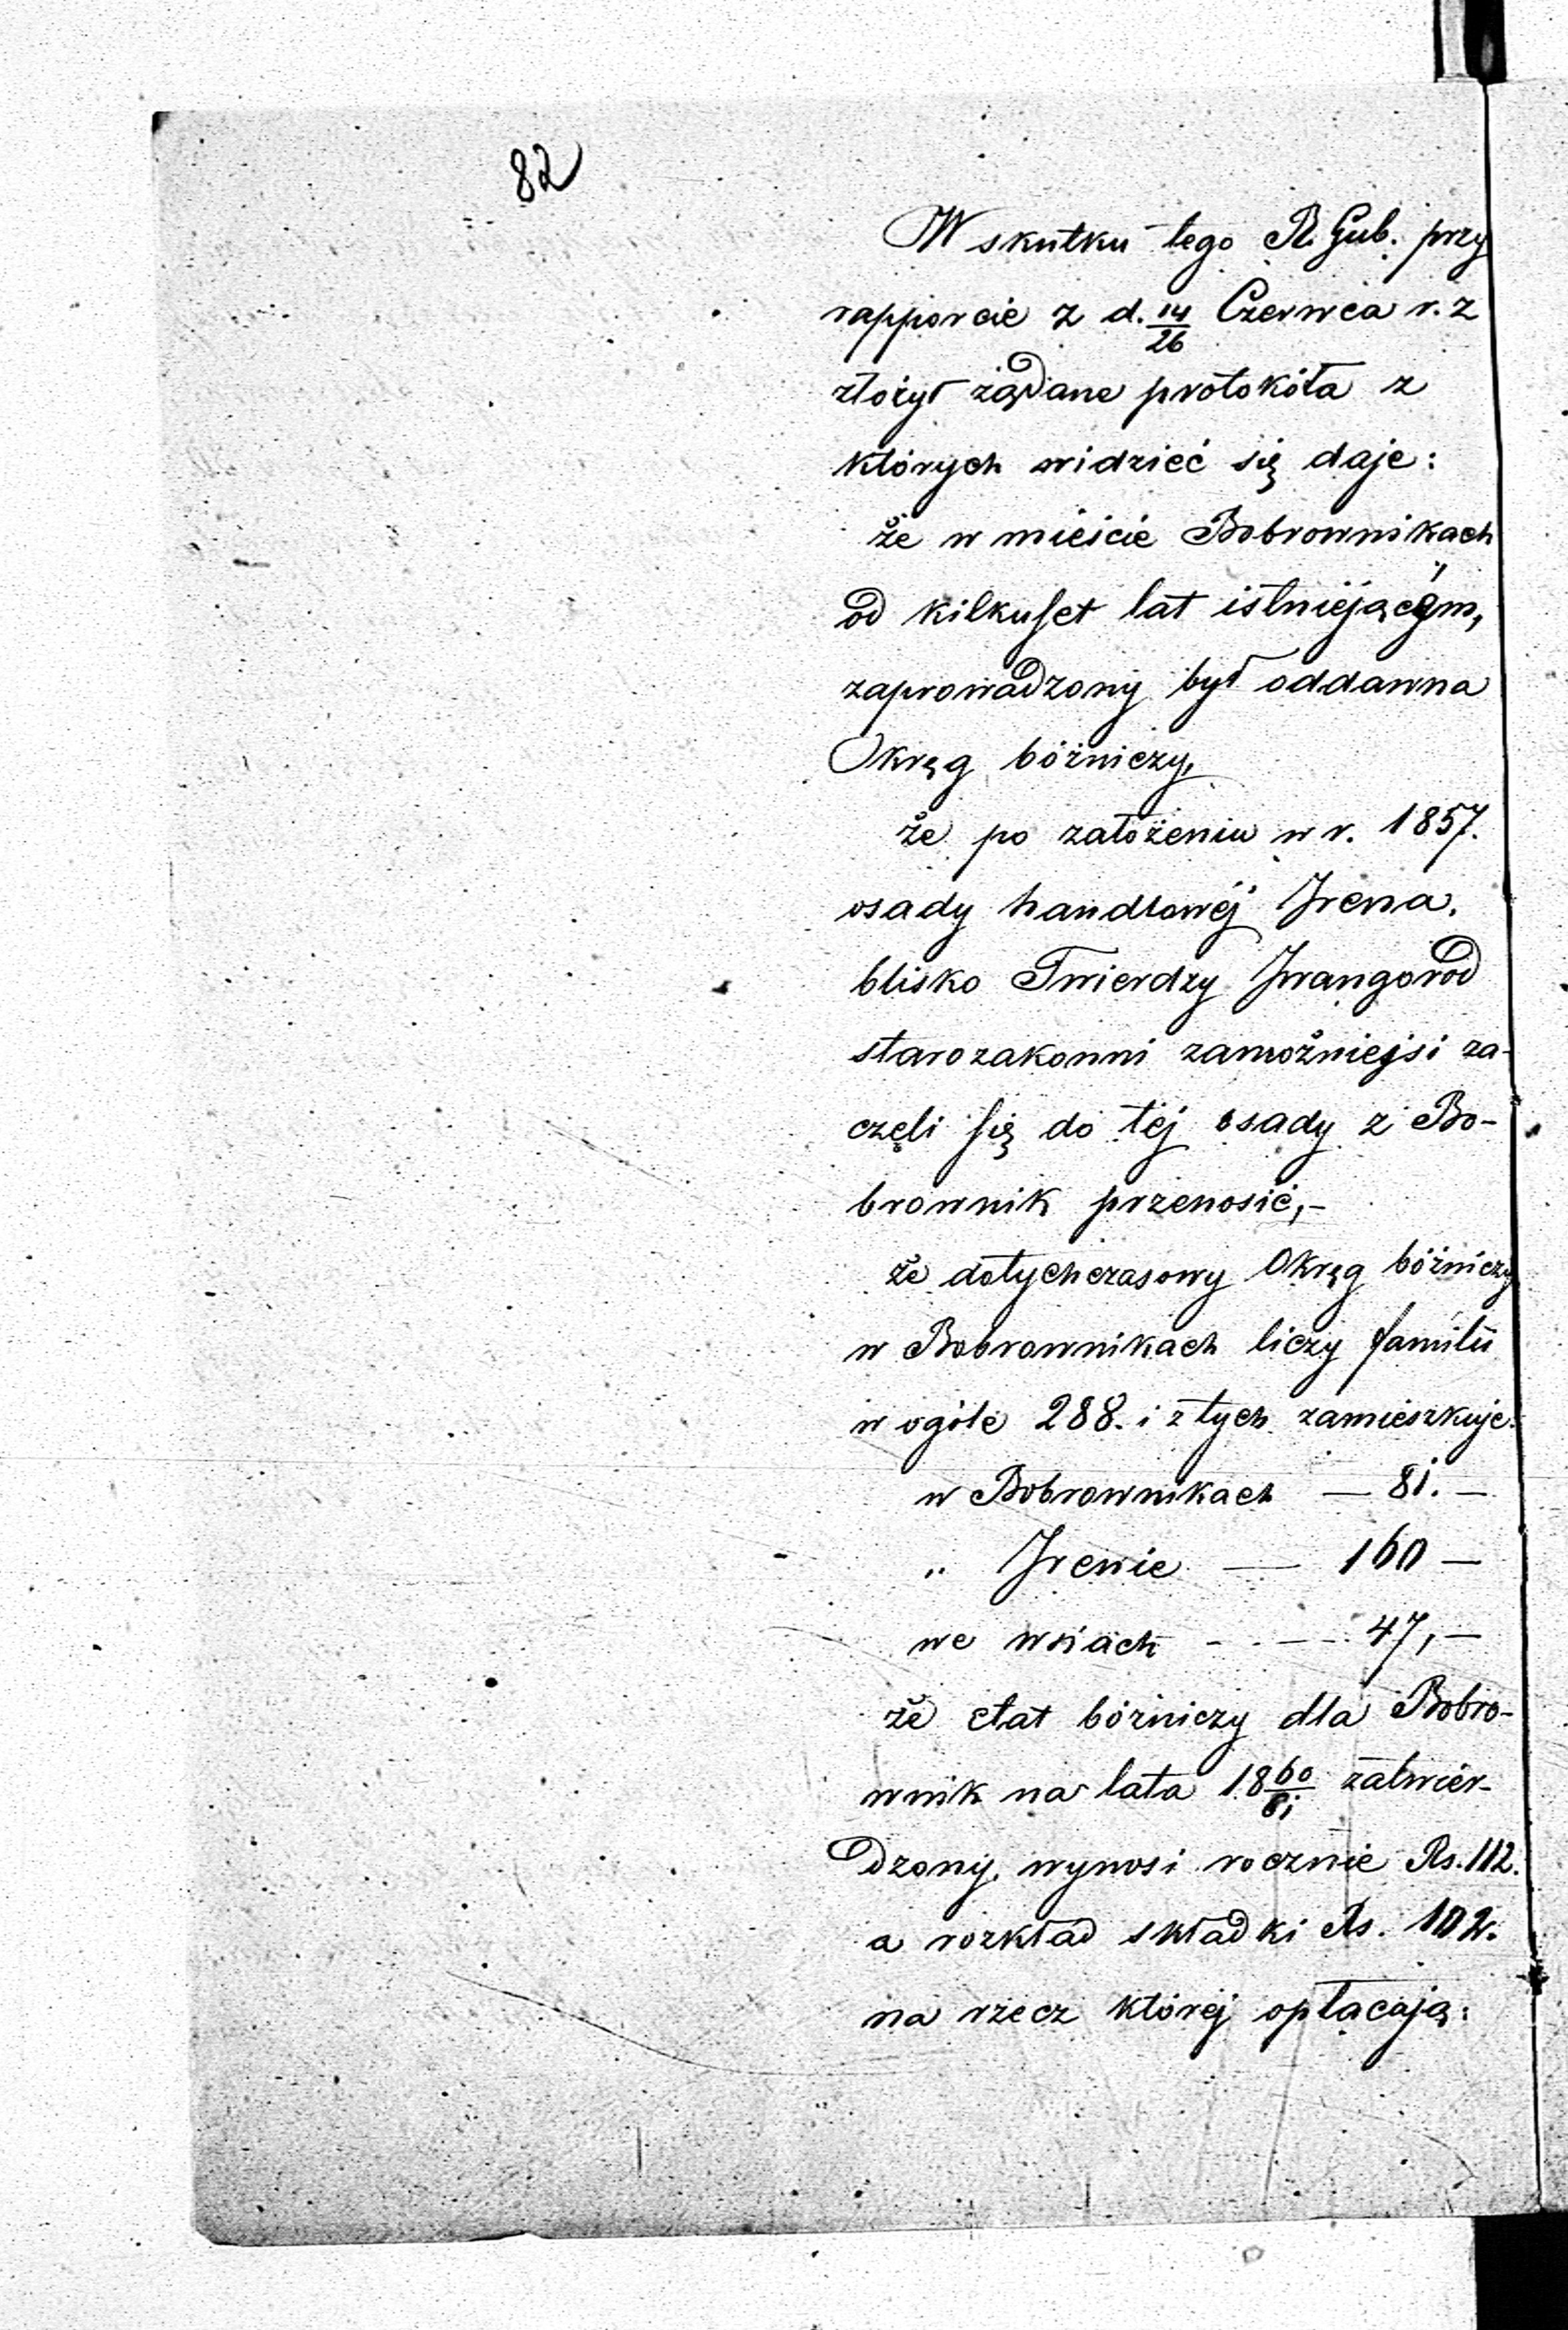 82
W skutku tego R. Gub. przy
rapporcie z d. 14/26 Czerwca r. z
złożył żądane protokóła z
których widzieć się daje:
że w mieście Bobrownikach
od kilkuset lat istniejącym,
zaprowadzony był oddawna
Okręg bóżniczy,
że po założeniu w r. 1857.
osady handlowéj Irena,
blisko Twierdzy Iwangorod
starozakonni zamożniejsi za-
częli się do téj osady z Bo-
brownik przenosić,-
że dotychczasowy Okręg bóżniczy
w Bobrownikach liczy familii
w ogóle 288. i z tych zamieszkuje.
w Bobrownikach — 81. —
„ Irenie — 160 —
we wsiach - - — 47, —
że etat bóżniczy dla Bobro-
wnik na lata 18 60/61 zatwier-
dzony, wynosi rocznie Rs. 112.
a rozkład składki Rs. 102.
na rzecz któréj opłacają: